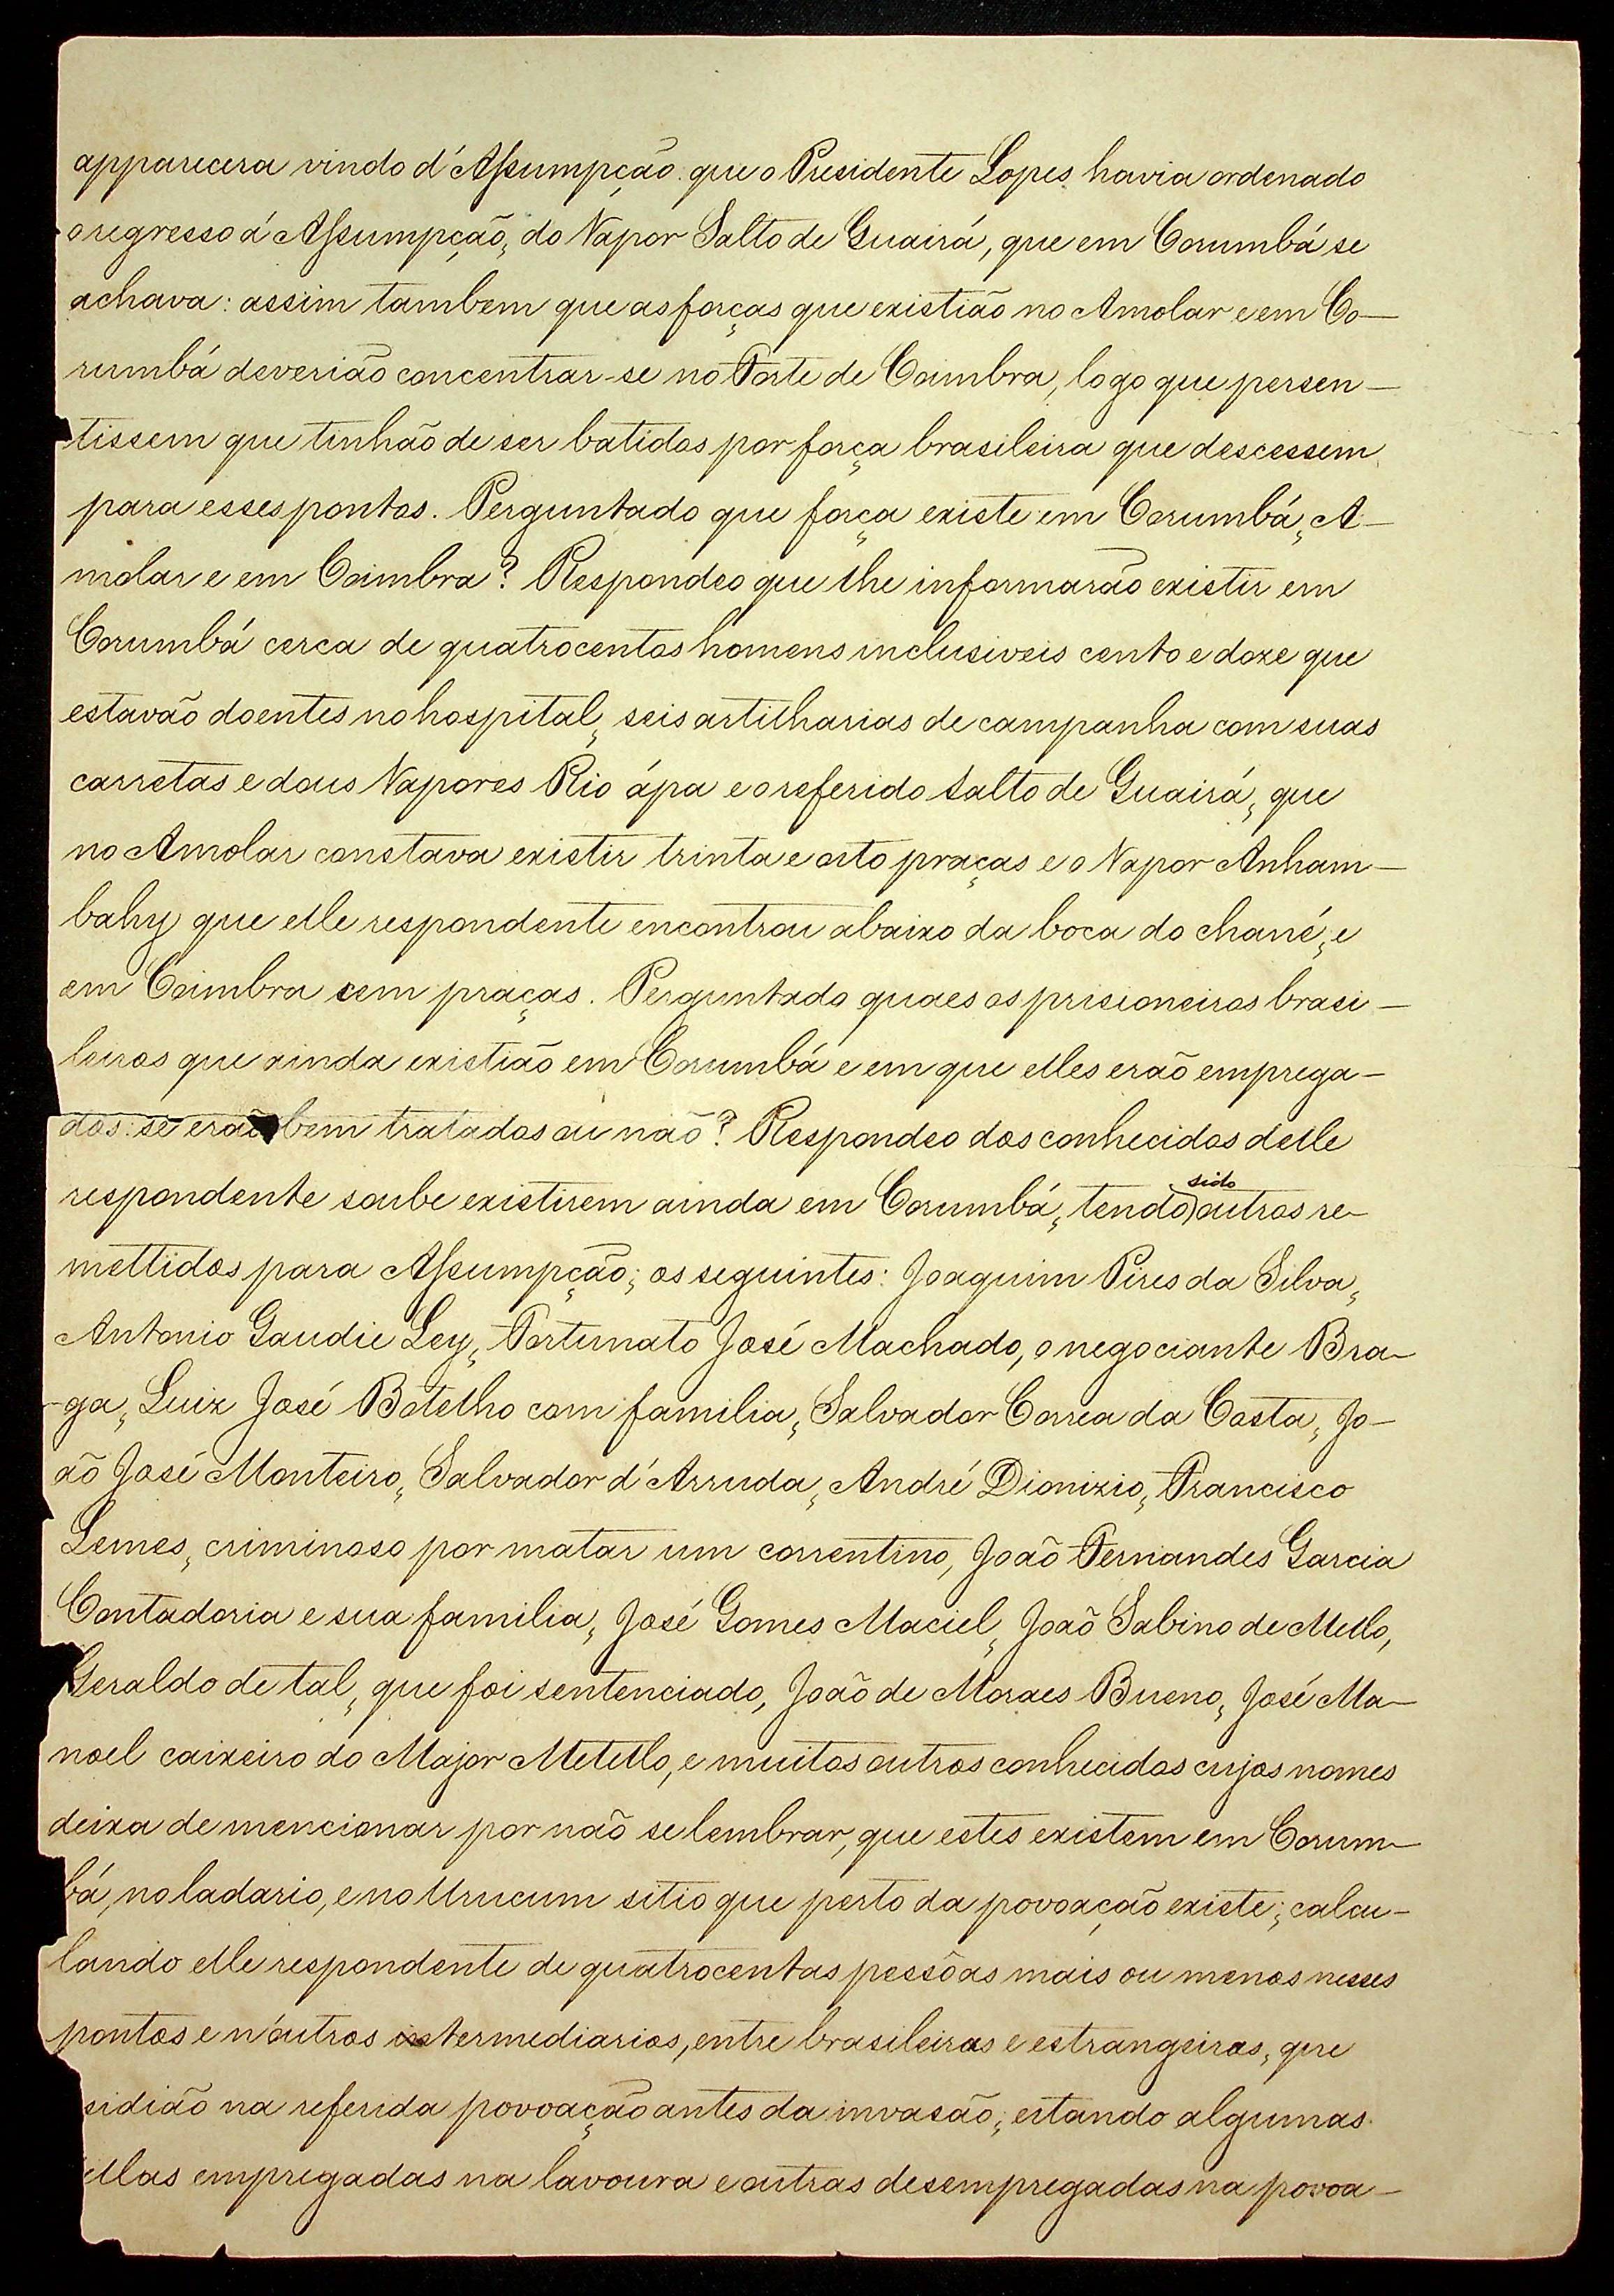 apparecera vindo d'Assumpção que o Presidente Lopes havia ordenado
o regresso á Assumpção, do Vapor Salto de Guairá, que em Corumbá se
achava: assim tambem que as forças que existião no Amolar e em Co-
rumbá deverião concentrar-se no Forte de Coimbra, logo que persen-
tissem que tinhão de ser batidos por força brasileira que descessem
para esses pontos. Perguntado que força existe em Corumbá, A-
molar e em Coimbra? Respondeo que lhe informarão existir em
Corumbá cerca de quatrocentos homens inclusiveis cento e doze que
estavão doentes no hospital, seis artilharias de campanha com suas
carretas e dous Vapores Rio ápa e o referido Salto de Guairá, que
no Amolar constava existir trinta e oito praças e o Vapor Anham-
bahy que elle respondente encontrou abaixo da boca do chané, e
em Coimbra cem praças. Perguntado quaes os prisioneiros brasi-
leiros que ainda existião em Corumbá e em que elles erão emprega-
dos: se erão bem tratados ou não? Respondeo dos conhecidos delle
respondente soube existirem ainda em Corumbá, tendo sido outros re-
mettidos para Assumpção; os seguintes: Joaquim Pires da Silva,
Antonio Gaudie Ley, Fortunato José Machado, o negociante Bra-
-ga, Luiz José Botelho com familia, Salvador Correa da Costa, Jo-
ão José Monteiro, Salvador d'Arruda, André Dionizio, Francisco
Lemes, criminoso por matar um correntino, João Fernandes Garcia
Contadoria e sua familia, José Gomes Maciel, João Sabino de Mello,
Geraldo de tal, que foi sentenciado, João de Moraes Bueno, José Ma-
noel caixeiro do Major Metello, e muitos outros conhecidos cujos nomes
deixa de mencionar por não se lembrar, que estes existem em Corum-
bá, no ladario, e no Urucum sitio que perto da povoação existe; calcu-
lando elle respondente de quatrocentas pessôas mais ou menos nesses
pontos e n'outros intermediarios, entre brasileiras e estrangeiras, que
sidião na referida povoação antes da invasão; estando algumas
ellas empregadas na lavoura e outras desempregadas na povoa-